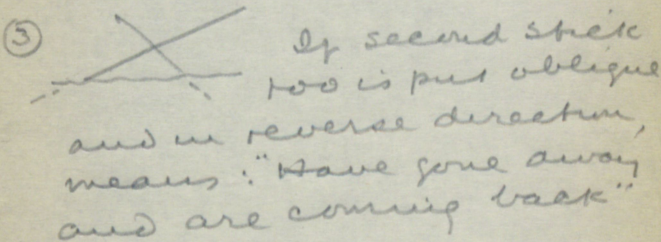 ③ If second stick
too is put oblique
and in reverse direction,
means: "Have gone away
and are coming back"